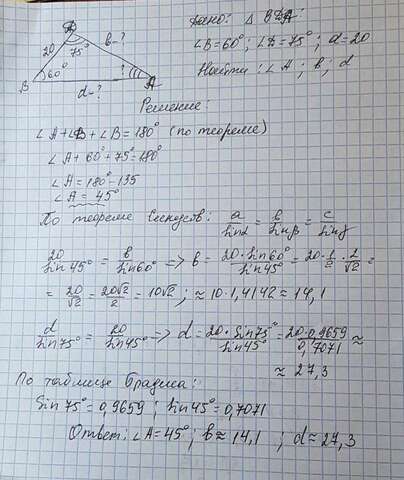 Дано: Δ BDA
∠B=60°; ∠D=75°; d=20
Найти: ∠A; b; d
D
20 75° b-?
B 60° ? A
d-?
Решение:
∠A+∠D+∠B=180° (по теореме)
∠A+60°+75°=180°
∠A=180°-135
∠A=45°
По теореме Синусов: a/sinα = b/sinβ = c/sinγ
20/sin45° = b/sin60° => b = 20·sin60°/sin45° = 20·1/2·2/√2 =
= 20/√2 = 20√2/2 = 10√2; ≈ 10·1,4142 ≈ 14,1
d/sin75° = 20/sin45° => d = 20·sin75°/sin45° = 20·0,9659/0,7071 ≈
≈ 27,3
По таблице Брадиса:
Sin75°=0,9659; sin45°=0,7071
Ответ: ∠A=45°; b≈14,1; d≈27,3